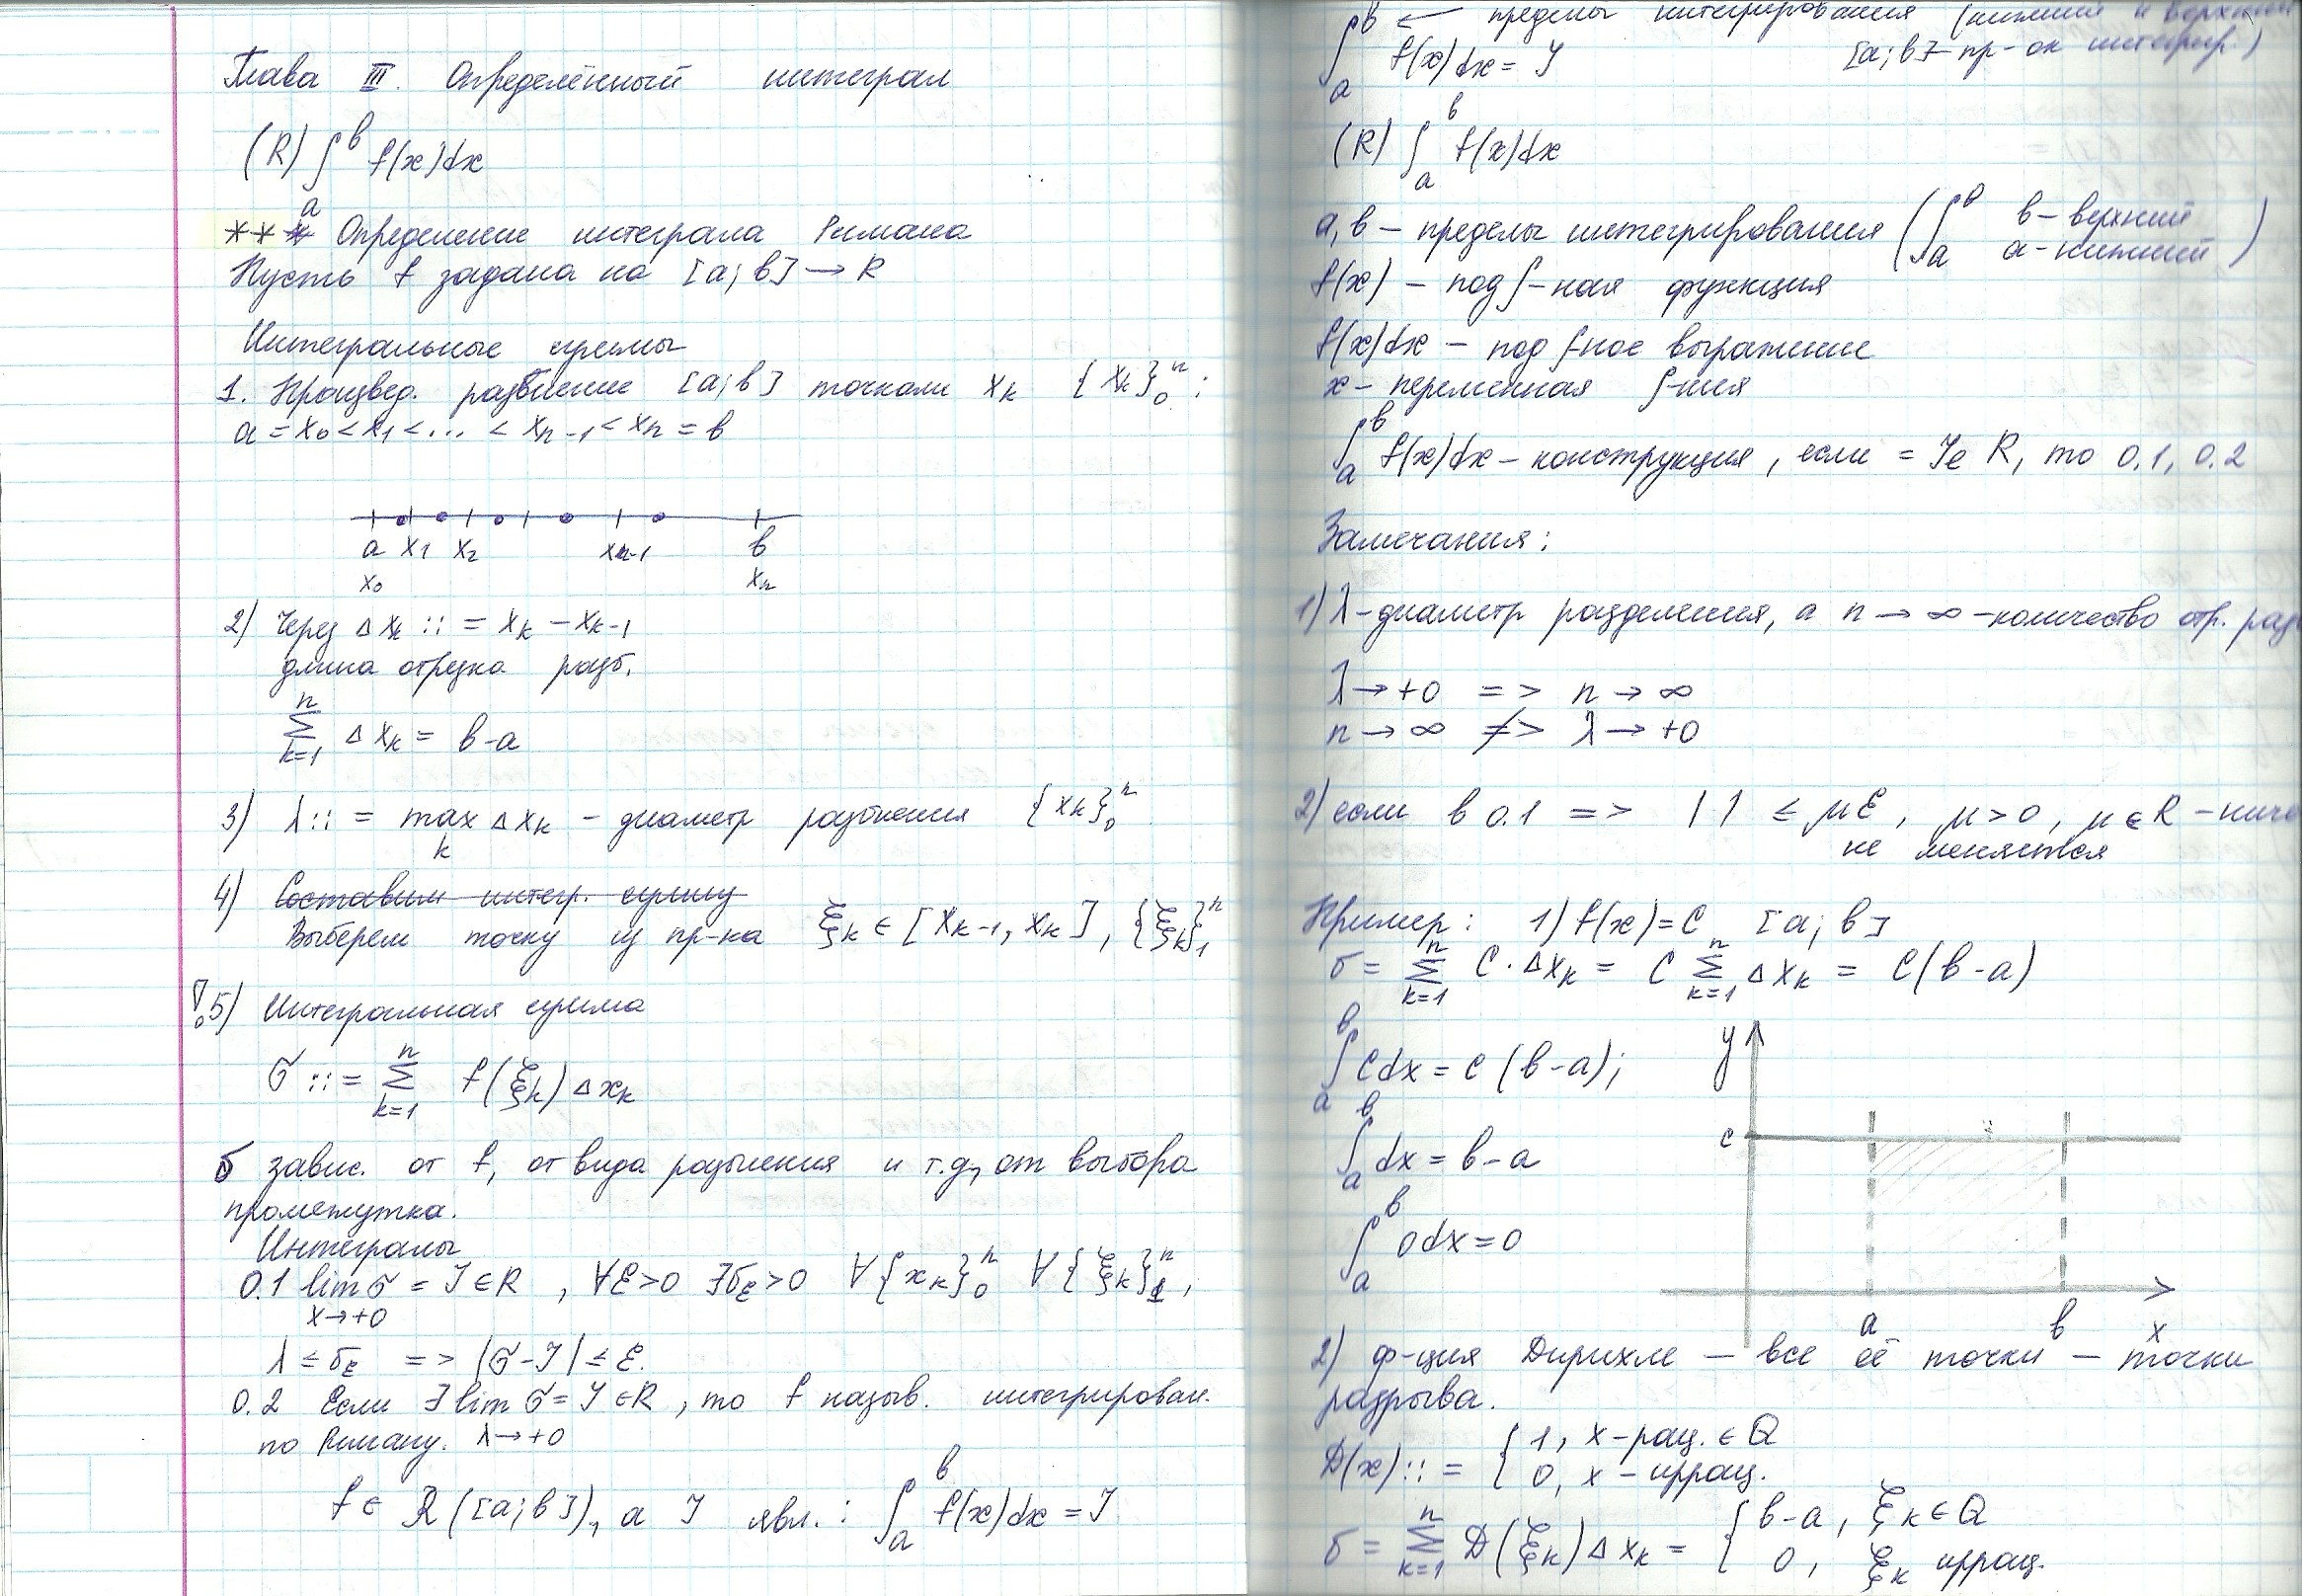 Глава III. Определённый интеграл
(R) ∫ₐᵇ f(x)dx
*** Определение интеграла Римана
Пусть f задана на [a; b] → R
Интегральные суммы
1. Произвед. разбиение [a; b] точками xₖ {xₖ}₀ⁿ :
a = x₀ < x₁ < ... < xₙ₋₁ < xₙ = b
a x₁ x₂ xₙ₋₁ b
x₀ xₙ
2) Через Δxₖ ::= xₖ − xₖ₋₁
длина отрезка разб.
∑ₖ₌₁ⁿ Δxₖ = b − a
3) λ ::= max Δxₖ – диаметр разбиения {xₖ}₀ⁿ
k
4) Составим интегр. сумму
Выберем точку из пр-ка ξₖ ∈ [xₖ₋₁, xₖ], {ξₖ}₁ⁿ
!5) Интегральная сумма
σ ::= ∑ₖ₌₁ⁿ f(ξₖ) Δxₖ
σ завис. от f, от вида разбиения и т.д., от выбора
промежутка.
Интегралы
0.1 lim σ = J ∈ R , ∀ε > 0 ∃δ_ε > 0 ∀{xₖ}₀ⁿ ∀{ξₖ}₁ⁿ ,
x → +0
λ ≤ δ_ε => |σ − J| ≤ ε.
0.2 Если ∃ lim σ = J ∈ R , то f назыв. интегрирован.
по Риману. λ → +0
f ∈ R([a; b]), а J явл. : ∫ₐᵇ f(x)dx = J
∫ₐᵇ ← пределы интегрирования (нижний и верхний
f(x)dx = J [a; b] – пр-ок интегрир.)
(R) ∫ₐᵇ f(x)dx
a, b – пределы интегрирования ( ∫ₐᵇ b – верхний
a – нижний )
f(x) – под∫-ная функция
f(x)dx – под∫-ное выражение
x – переменная ∫-ния
∫ₐᵇ f(x)dx – конструкция, если = J ∈ R, то 0.1, 0.2
Замечания:
1) λ – диаметр разделения, а n → ∞ – количество отр. раз
λ → +0 => n → ∞
n → ∞ ≠> λ → +0
2) если в 0.1 => | | ≤ με , μ > 0 , μ ∈ R – ниче
не меняется
Пример: 1) f(x) = C [a; b]
σ = ∑ₖ₌₁ⁿ C · Δxₖ = C ∑ₖ₌₁ⁿ Δxₖ = C(b − a)
∫ₐᵇ Cdx = C(b − a);
y
∫ₐᵇ dx = b − a
c
∫ₐᵇ 0dx = 0
a b x
2) ф-ция Дирихле – все её точки – точки
разрыва.
D(x) ::= { 1, x – рац. ∈ Q
0, x – иррац.
σ = ∑ₖ₌₁ⁿ D(ξₖ) Δxₖ = { b − a , ξₖ ∈ Q
0 , ξₖ иррац.